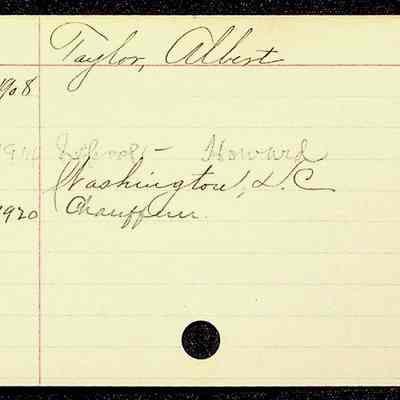 Taylor, Albert
1908
School - Howard
Washington, D.C
1920 Chauffeur